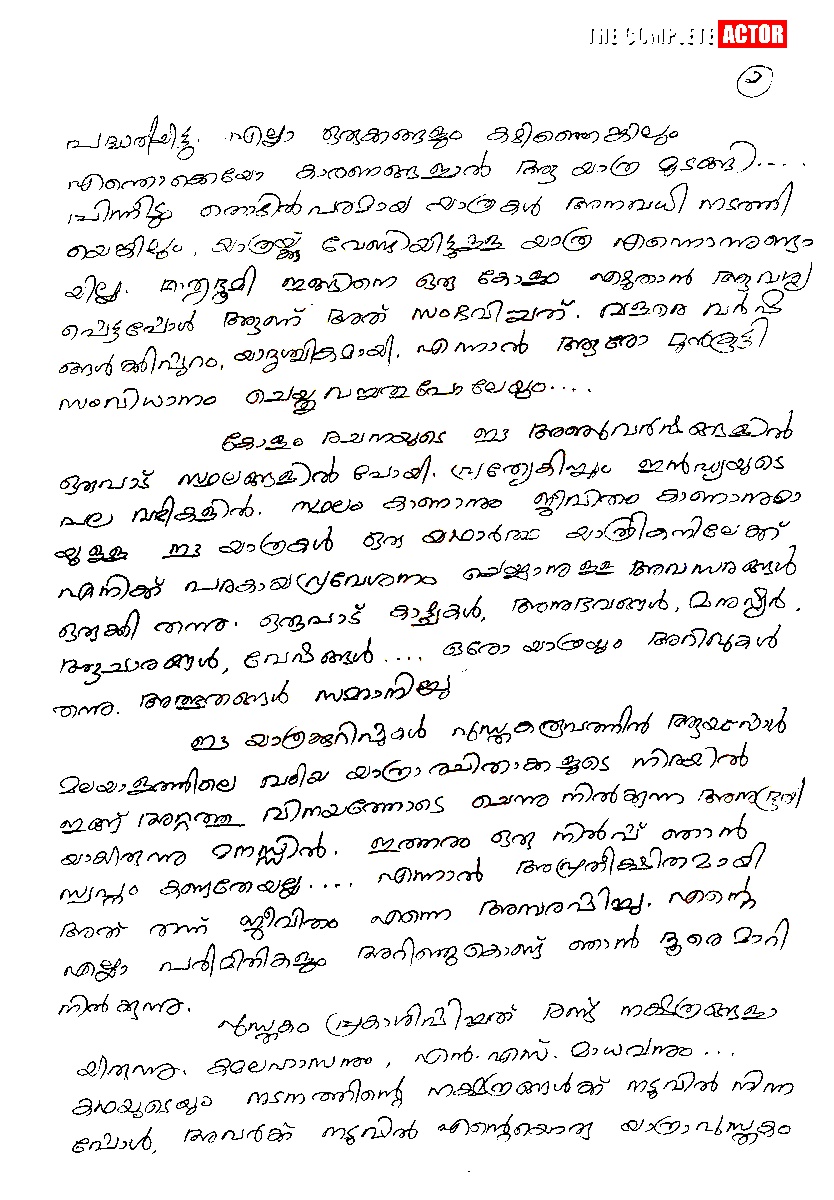 THE COMPLETE ACTOR
൨
പദ്ധതിയിട്ടു. എല്ലാ ഒരുക്കങ്ങളും കഴിഞ്ഞെങ്കിലും
എന്തൊക്കെയോ കാരണങ്ങളാൽ ആ യാത്ര മുടങ്ങി....
പിന്നീടും തൊഴിൽപരമായ യാത്രകൾ അനവധി നടത്തി
യെങ്കിലും, യാത്രയ്ക്കു വേണ്ടിയിട്ടുള്ള യാത്ര എന്നൊന്നുണ്ടാ
യില്ല. മാതൃഭൂമി ഇങ്ങിനെ ഒരു കോളം എഴുതാൻ ആവശ്യ
പ്പെട്ടപ്പോൾ ആണ് അത് സംഭവിച്ചത്. വളരെ വർഷ
ങ്ങൾക്കിപ്പുറം, യാദൃശ്ചികമായി. എന്നാൽ ആരോ മുൻകൂട്ടി
സംവിധാനം ചെയ്തു വച്ചതുപോലെയും....
കോളം രചനയുടെ ഈ അഞ്ചുവർഷങ്ങളിൽ
ഒരുപാട് സ്ഥലങ്ങളിൽ പോയി. പ്രത്യേകിച്ചും ഇൻഡ്യയുടെ
പല വഴികളിൽ. സ്ഥലം കാണാനും ജീവിതം കാണാനുമാ
യുള്ള ഈ യാത്രകൾ ഒരു യഥാർത്ഥ യാത്രികനിലേക്ക്
എനിക്ക് പരകായപ്രവേശനം ചെയ്യാനുള്ള അവസരങ്ങൾ
ഒരുക്കി തന്നു. ഒരുപാട് കാഴ്ചകൾ, അനുഭവങ്ങൾ, മനുഷ്യർ,
ആചാരങ്ങൾ, വേഷങ്ങൾ.... ഒരോ യാത്രയും അറിവുകൾ
തന്നു. അത്ഭുതങ്ങൾ സമ്മാനിച്ചു
ഈ യാത്രക്കുറിപ്പുകൾ പുസ്തകരൂപത്തിൽ ആയപ്പോൾ
മലയാളത്തിലെ വലിയ യാത്രാ രചിതാക്കളുടെ നിരയിൽ
ഇങ്ങ് അറ്റത്തു വിനയത്തോടെ ചെന്നു നിൽക്കുന്ന അനുഭൂതി
യായിരുന്നു മനസ്സിൽ. ഇത്തരം ഒരു നിൽപ്പ് ഞാൻ
സ്വപ്നം കണ്ടതേയല്ല.... എന്നാൽ അപ്രതീക്ഷിതമായി
അത് തന്ന് ജീവിതം എന്നെ അമ്പരപ്പിച്ചു. എന്റെ
എല്ലാ പരിമിതികളും അറിഞ്ഞുകൊണ്ട് ഞാൻ ദൂരെ മാറി
നിൽക്കുന്നു.
പുസ്തകം പ്രകാശിപ്പിച്ചത് രണ്ട് നക്ഷത്രങ്ങളാ
യിരുന്നു. കമലഹാസനും, എൻ.എസ്. മാധവനും...
കഥയുടെയും നടനത്തിന്റെ നക്ഷത്രങ്ങൾക്ക് നടുവിൽ നിന്ന
പ്പോൾ, അവർക്ക് നടുവിൽ എന്റെയൊരു യാത്രാപുസ്തകം